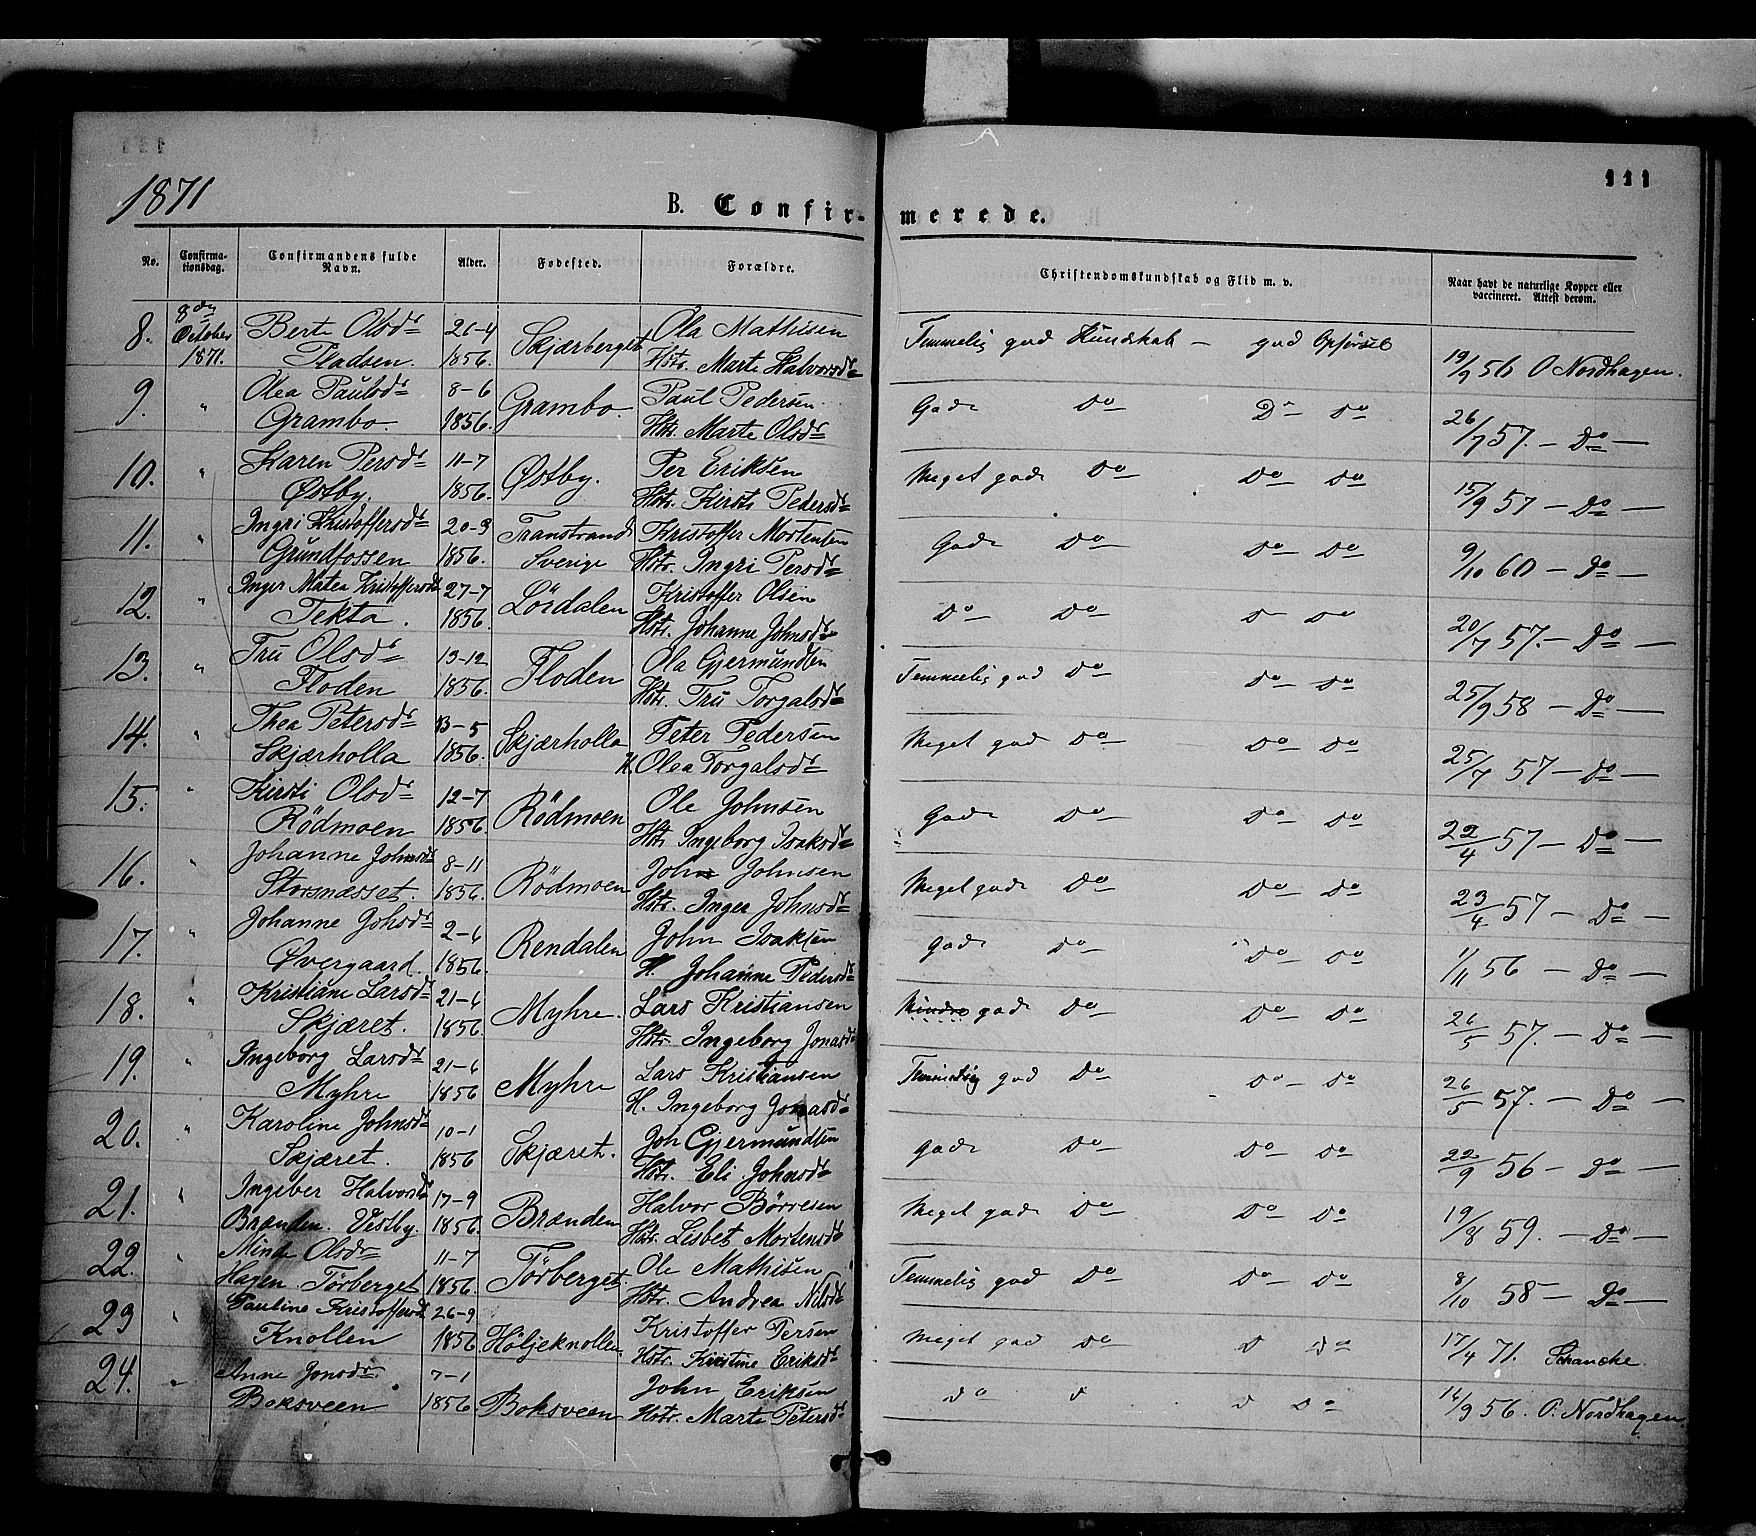 1871
111
B. Confir-merede.
No. Confirma-tionsdag. Confirmandens fulde Navn. Alder. Fødested. Forældre. Christendomskundskab og Flid m. v. Naar havt de naturlige Kopper eller vaccineret. Attest derom.
8. 8de October 1871. Berte Olsdr 21-4 Skjærberget Ola Mathisen Temmelig god Kundskab - god Opførsel
Pladsen. 1856. Hstr. Marte Halvorsdr 19/9 56 O Nordhagen.
9. " Olea Paulsdr 8-6 Grambo. Paul Pedersen Gode Do Do do
Grambo. 1856. Hstr. Marte Olsdr 26/7 57. - Do -
10. " Karen Persdr 11-7 Østby. Per Eriksen Meget gode Do Do do
Østby. 1856. Hstr. Kersti Pedersdr 15/9 57 - Do -
11. " Ingri Kristoffersdr 20-3 Transtrand Kristoffer Mortensen Gode Do Do do
Gundfossen 1856. Sverige Hstr. Ingri Persdr 9/10 60 - Do -
12. " Inger Matea Kristoffersdr 27-7 Lørdalen Kristoffer Olsen do Do do do
Tekta. 1856. Hstr. Johanne Johnsdr 20/7 57. - Do -
13. " Tru Olsdr 13-12 Floden Ola Gjermundsen Temmelig god Do do do
Floden 1856. Hstr. Tru Torgalsdr 25/9 58 - Do -
14. " Thea Petersdr 13-5 Skjærholla Peter Pedersen Meget god Do Do do
Skjærholla 1856. H. Olea Torgalsdr 25/7 57 - Do -
15. " Kirsti Olsdr 12-7 Rödmoen Ole Johnsen Gode Do Do do
Rödmoen 1856 Hstr. Ingeborg Isaksdr 22/4 57 - Do -
16. " Johanne Johnsdr 8-11 Rödmoen John Johnsen Meget gode Do Do Do
Storsnæsset. 1856. Hstr. Inger Johnsdr 23/4 57 - Do -
17. " Johanne Johsdr 2-6 Rendalen John Isaksen Gode do Do do
Øvergaard. 1856. H. Johanne Pedersdr 1/11 56 - Do -
18. " Kristiane Larsdr 21-6 Myhre. Lars Kristiansen Mindre gode Do Do do
Skjæret. 1856. Hstr. Ingeborg Jonasdr 26/5 57. - Do -
19. " Ingeborg Larsdr 21-6 Myhre Lars Kristiansen Temmelig god Do do do
Myhre 1856 H. Ingeborg Jonasdr 26/5 57. - Do -
20. " Karoline Johnsdr 10-1 Skjæret. Joh Gjermundsen gode Do Do do
Skjæret. 1856 Hstr. Eli Johnsdr 22/9 56 - Do -
21. " Ingeber Halvorsdr 17-9 Brænden Halvor Börresen Meget gode Do Do do
Brænden. Vestby. 1856. Hstr. Lisbet Mortensdr 19/8 59. - Do -
22. " Minda Olsdr 11-7 Törberget. Ole Mathisen Temmelig god Do Do do
Hagen. Törberget 1856. Hstr. Andrea Nilsdr 8/10 58 - Do -
23 " Pauline Kristoffersdr 26-9 Höljeknollen. Kristoffer Persen Meget god Do D do
Knollen 1856. Hstr. Kristine Eriksdr 17/4 71. Schancke.
24. " Anne Jonsdr 7-1 Boksveen John Eriksen do d d do
Boksveen 1856 Hstr. Marte Petersdr 14/9 56. O. Nordhagen